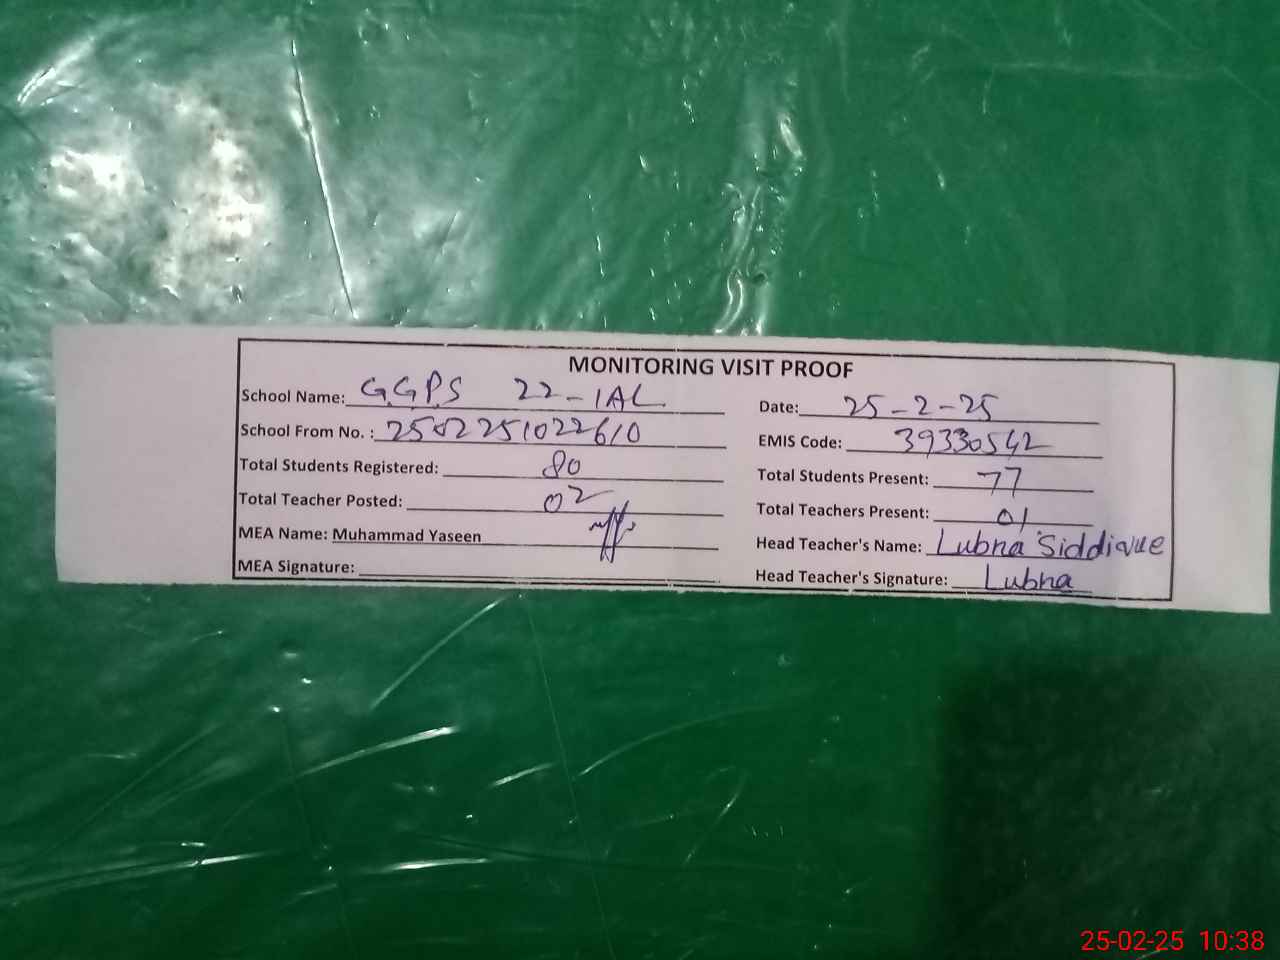 MONITORING VISIT PROOF
School Name: G.G.P.S 22-1AL Date: 25-2-25
School From No. : 2502251022610 EMIS Code: 39330542
Total Students Registered: 80 Total Students Present: 77
Total Teacher Posted: 02 Total Teachers Present: 01
MEA Name: Muhammad Yaseen Head Teacher's Name: Lubna Siddique
MEA Signature: Head Teacher's Signature: Lubna
25-02-25 10:38